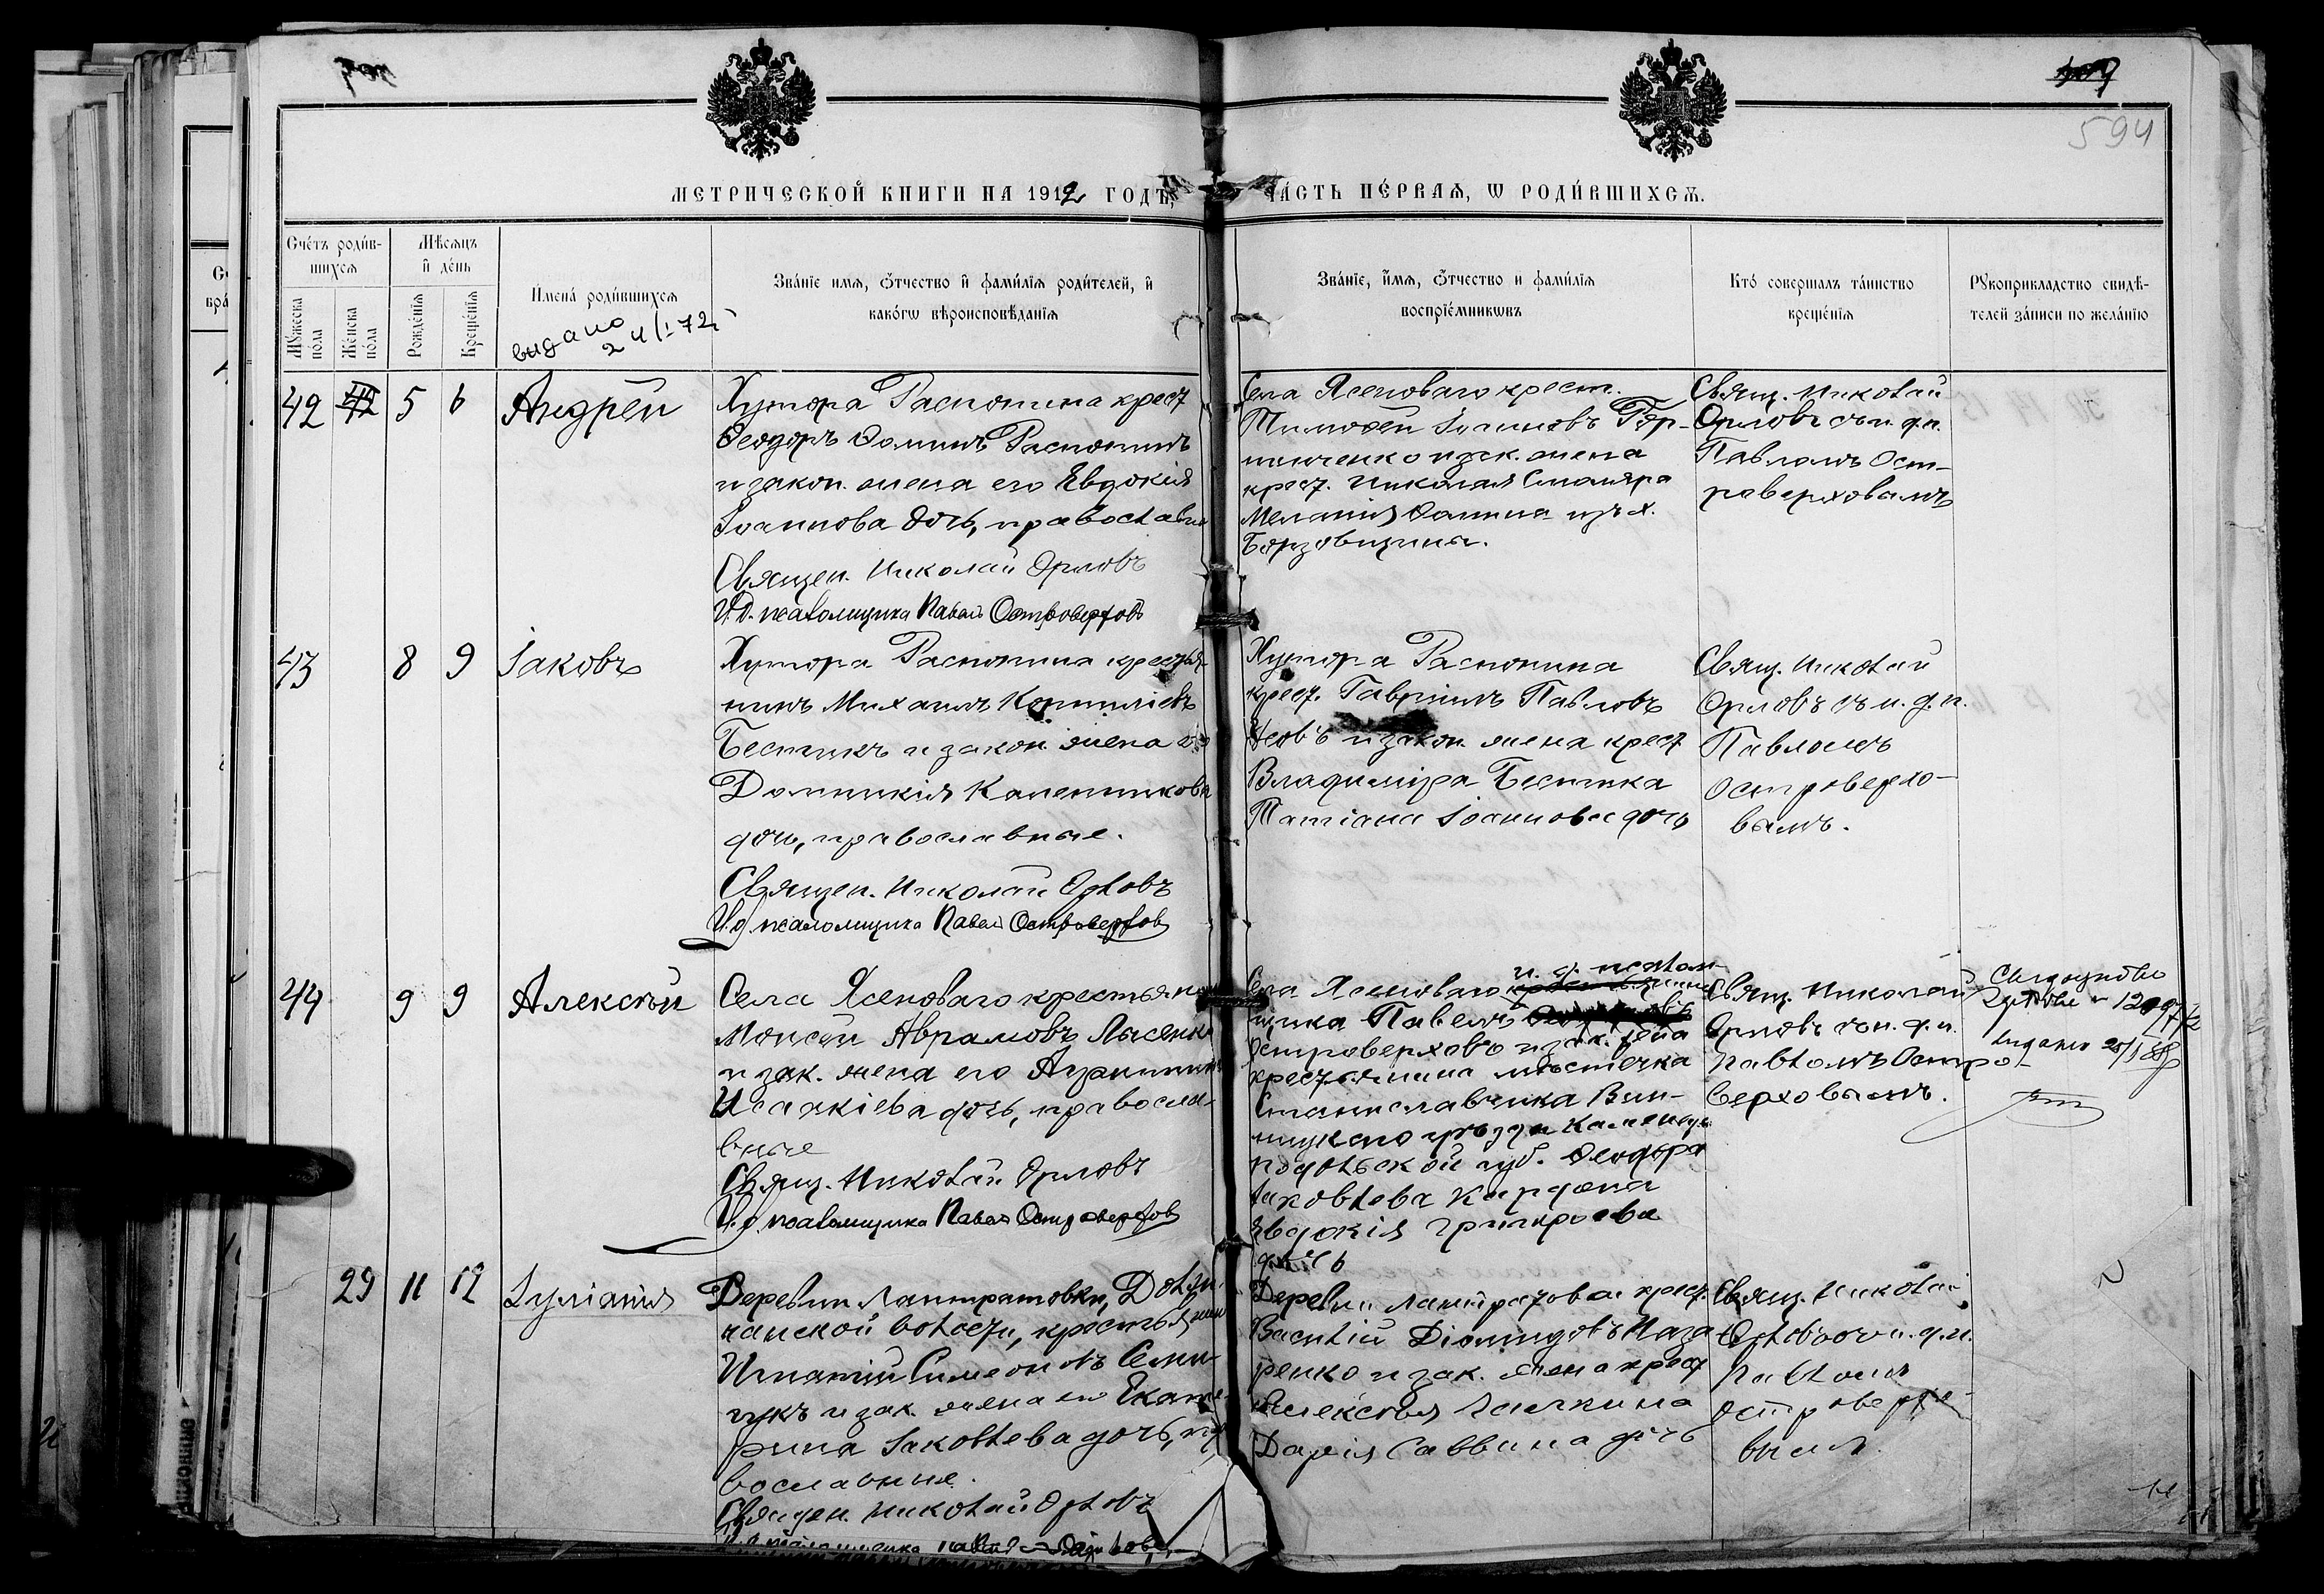 594
МЕТРИЧЕСКОЙ КНИГИ НА 1912 ГОДЪ,
ЧА́СТЬ ПЕ́РВАѦ, Ѡ РОДИ́ВШИХСѦ.
Сче́тъ роди́в-
шихсѧ
Мꙋ́жеска по́ла
Же́нска по́ла
Мѣ́сѧцъ
и҆ де́нь
Рожде́нїѧ
Креще́нїѧ
И҆мена̀ роди́вшихсѧ
видано
24/I 72
Зва́нїе имѧ, ѻ҆́тчество и҆ фами́лїѧ роди́телей, и҆
како́гѡ вѣроисповѣ́данїѧ
Зва́нїе, и҆́мѧ, ѻ҆́тчество и фами́лїѧ
воспрїе́мникѡвъ
Кто́ соверша́лъ та́инство
креще́нїѧ
Рꙋкоприкладство свидѣ́-
телей за́писи по жела́нїю
42
42
5
6
Андрей
Хутора Распопина крест
Ѳеодоръ Ѳоминъ Распопинъ
и закон. жена его Евдокія
Іоаннова дочь, православн
Священ. Николай Орловъ
И. д. псаломщика Павелъ Островерховъ
Села Ясеноваго крест.
Тимоѳей Іоанновъ Гор-
крест. Николая
Меланія Ѳомина изъ х.
Борзовщины.
Свящ. Николай
Орловъ съ и. д. п.
Павломъ Ост-
роверховымъ
43
8
9
Іаковъ
Хутора Распопина крестья-
нинъ Михаилъ Корниліевъ
Бестикъ и закон жена его
Домникія Каленникова
дочь, православные.
Священ. Николай Орловъ
И. д. псаломщика Павелъ Островерховъ
Хутора Распопина
крест. Гавріилъ Павловъ
и закон. жена крест
Владиміра Бестика
Татіана Іоаннова дочь
Свящ. Николай
Орловъ съ и. д. п.
Павломъ
Островерхо-
вымъ.
44
9
9
Алексѣй
Села Ясеноваго крестьянинъ
Моисей Аврамовъ Лысенко
и зак. жена его
Исаакіева дочь, правосла-
вные
Свящ. Николай Орловъ
И. д. псаломщика Павелъ Островерховъ
и. д. псалом-
Села Ясеноваго крестьянинъ
щика Павелъ
Островерховъ и зак. жена
крестьянина мѣстечка
Станиславчика Вин-
ницкаго уѣзда Каменецъ
Подольской губ. Ѳеодора
Іаковлева Кардона
Евдокія Григорьева
дочь
Свящ. Николай
Орловъ съ и. д. п.
Павломъ Остро-
верховымъ.
29
11
12
Іуліанія
Деревни Лантратовки, Долж-
чанской волости, крестьянин
Игнатій Симеоновъ Семи-
и зак. жена его Екате-
рина Іаковлева дочь, пра
вославные.
Священ. Николай Орловъ
Деревни крест.
Василій Діомидовъ Наза-
ренко и зак. жена крест
Алексѣя
Дарія Саввина дочь
Свящ. Николай
Орловъ съ и. д. п.
Павломъ
Островерхо-
вымъ.